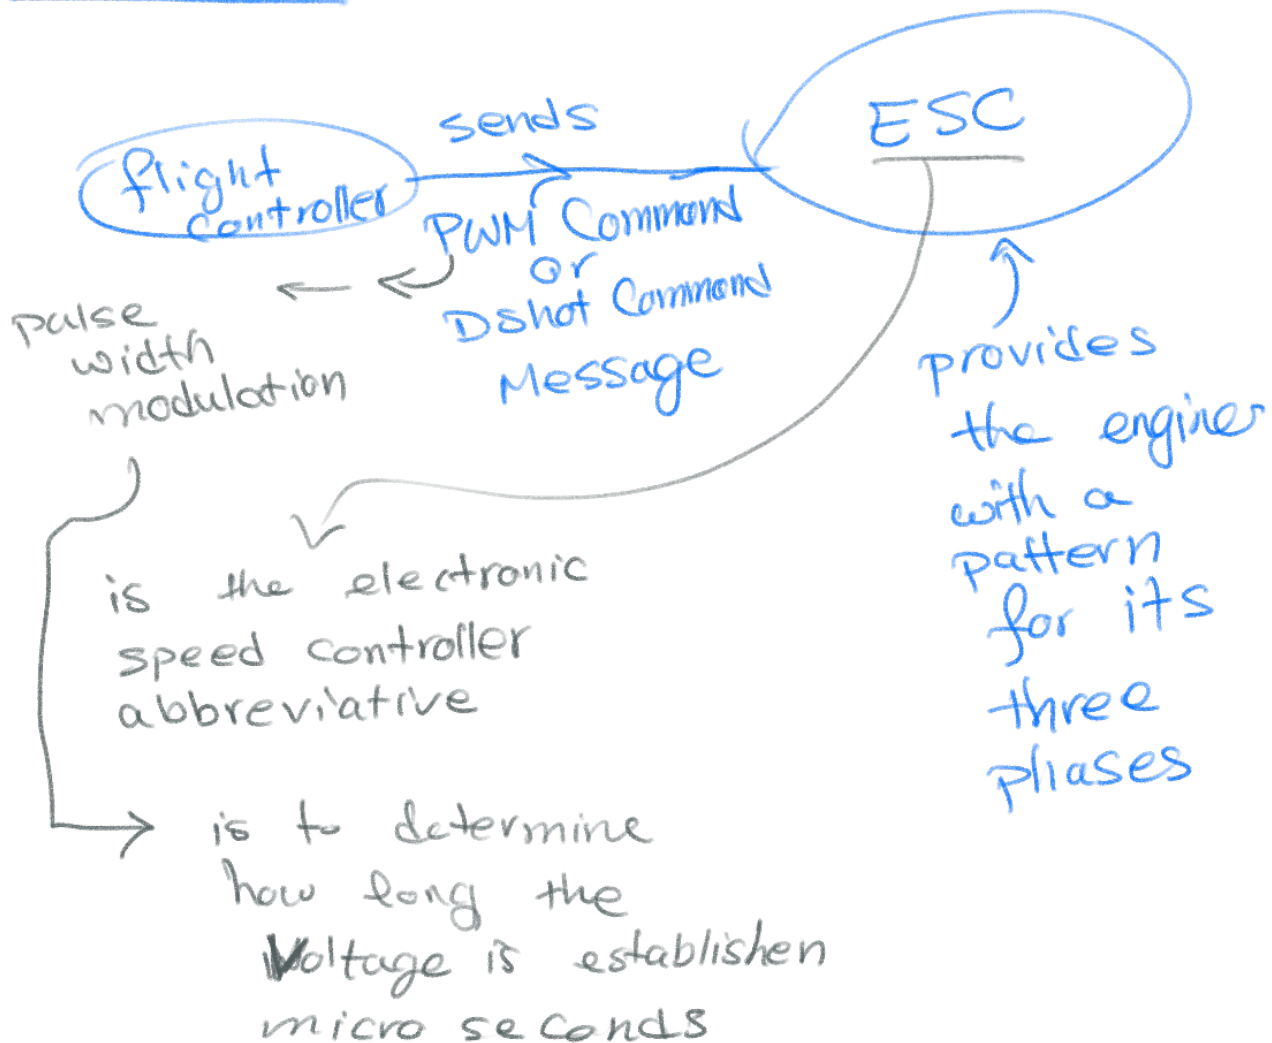 flight
controller
sends
PWM Command
or
Dshot Command
Message
ESC
pulse
width
modulation
provides
the engine
with a
pattern
for its
three
phases
is the electronic
speed controller
abbreviative
is to determine
how long the
Voltage is establishen
micro seconds